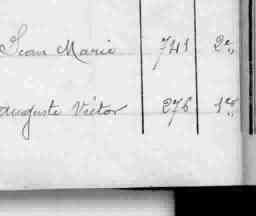 Jean Marie 741 2e,,
Auguste Victor 276 1er,,